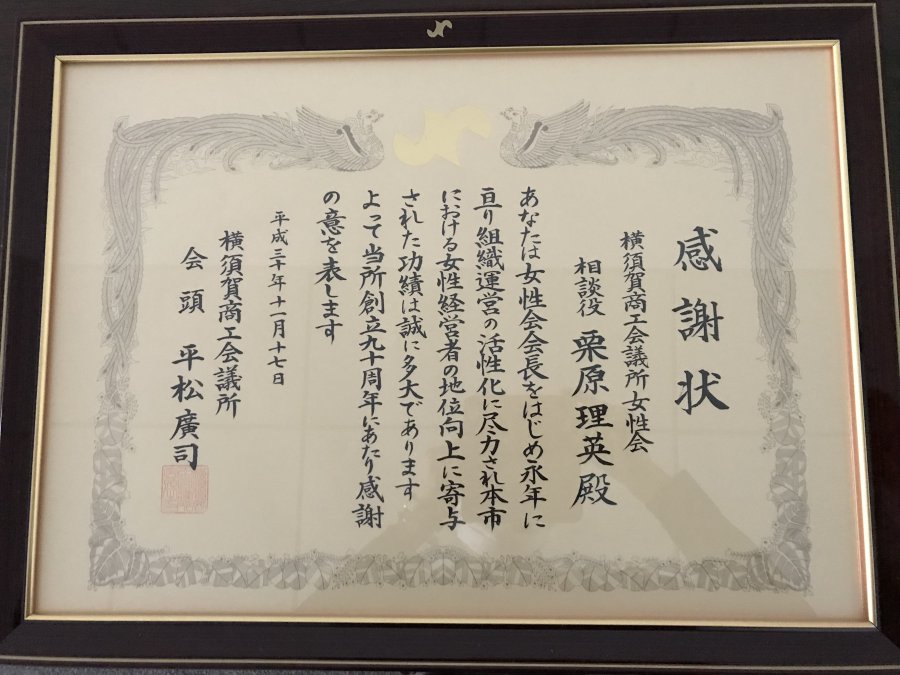 感謝状
横須賀商工会議所女性会
相談役 栗原理英殿
あなたは女性会会長をはじめ永年に
亘り組織運営の活性化に尽力され本市
における女性経営者の地位向上に寄与
された功績は誠に多大であります
よって当所創立九十周年にあたり感謝
の意を表します
平成三十年十一月十七日
横須賀商工会議所
会頭 平松廣司